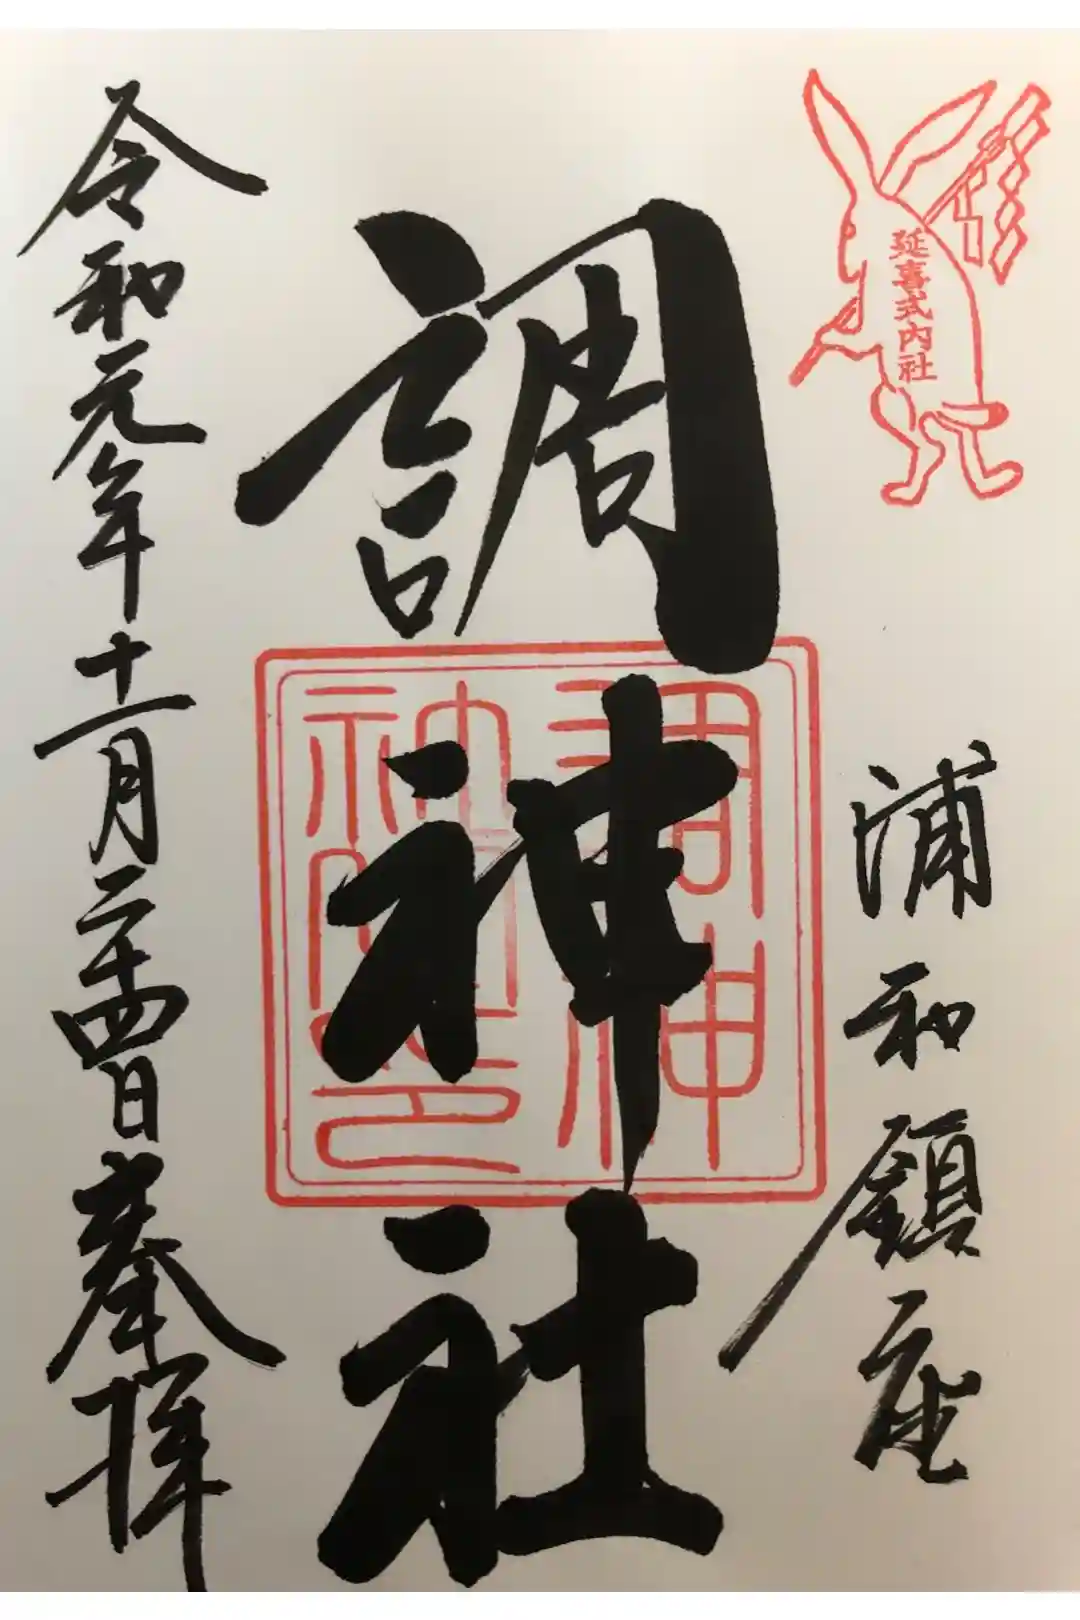 延喜式内社
浦和鎮座
調神社
調神社印
令和元年十一月二十四日奉拝